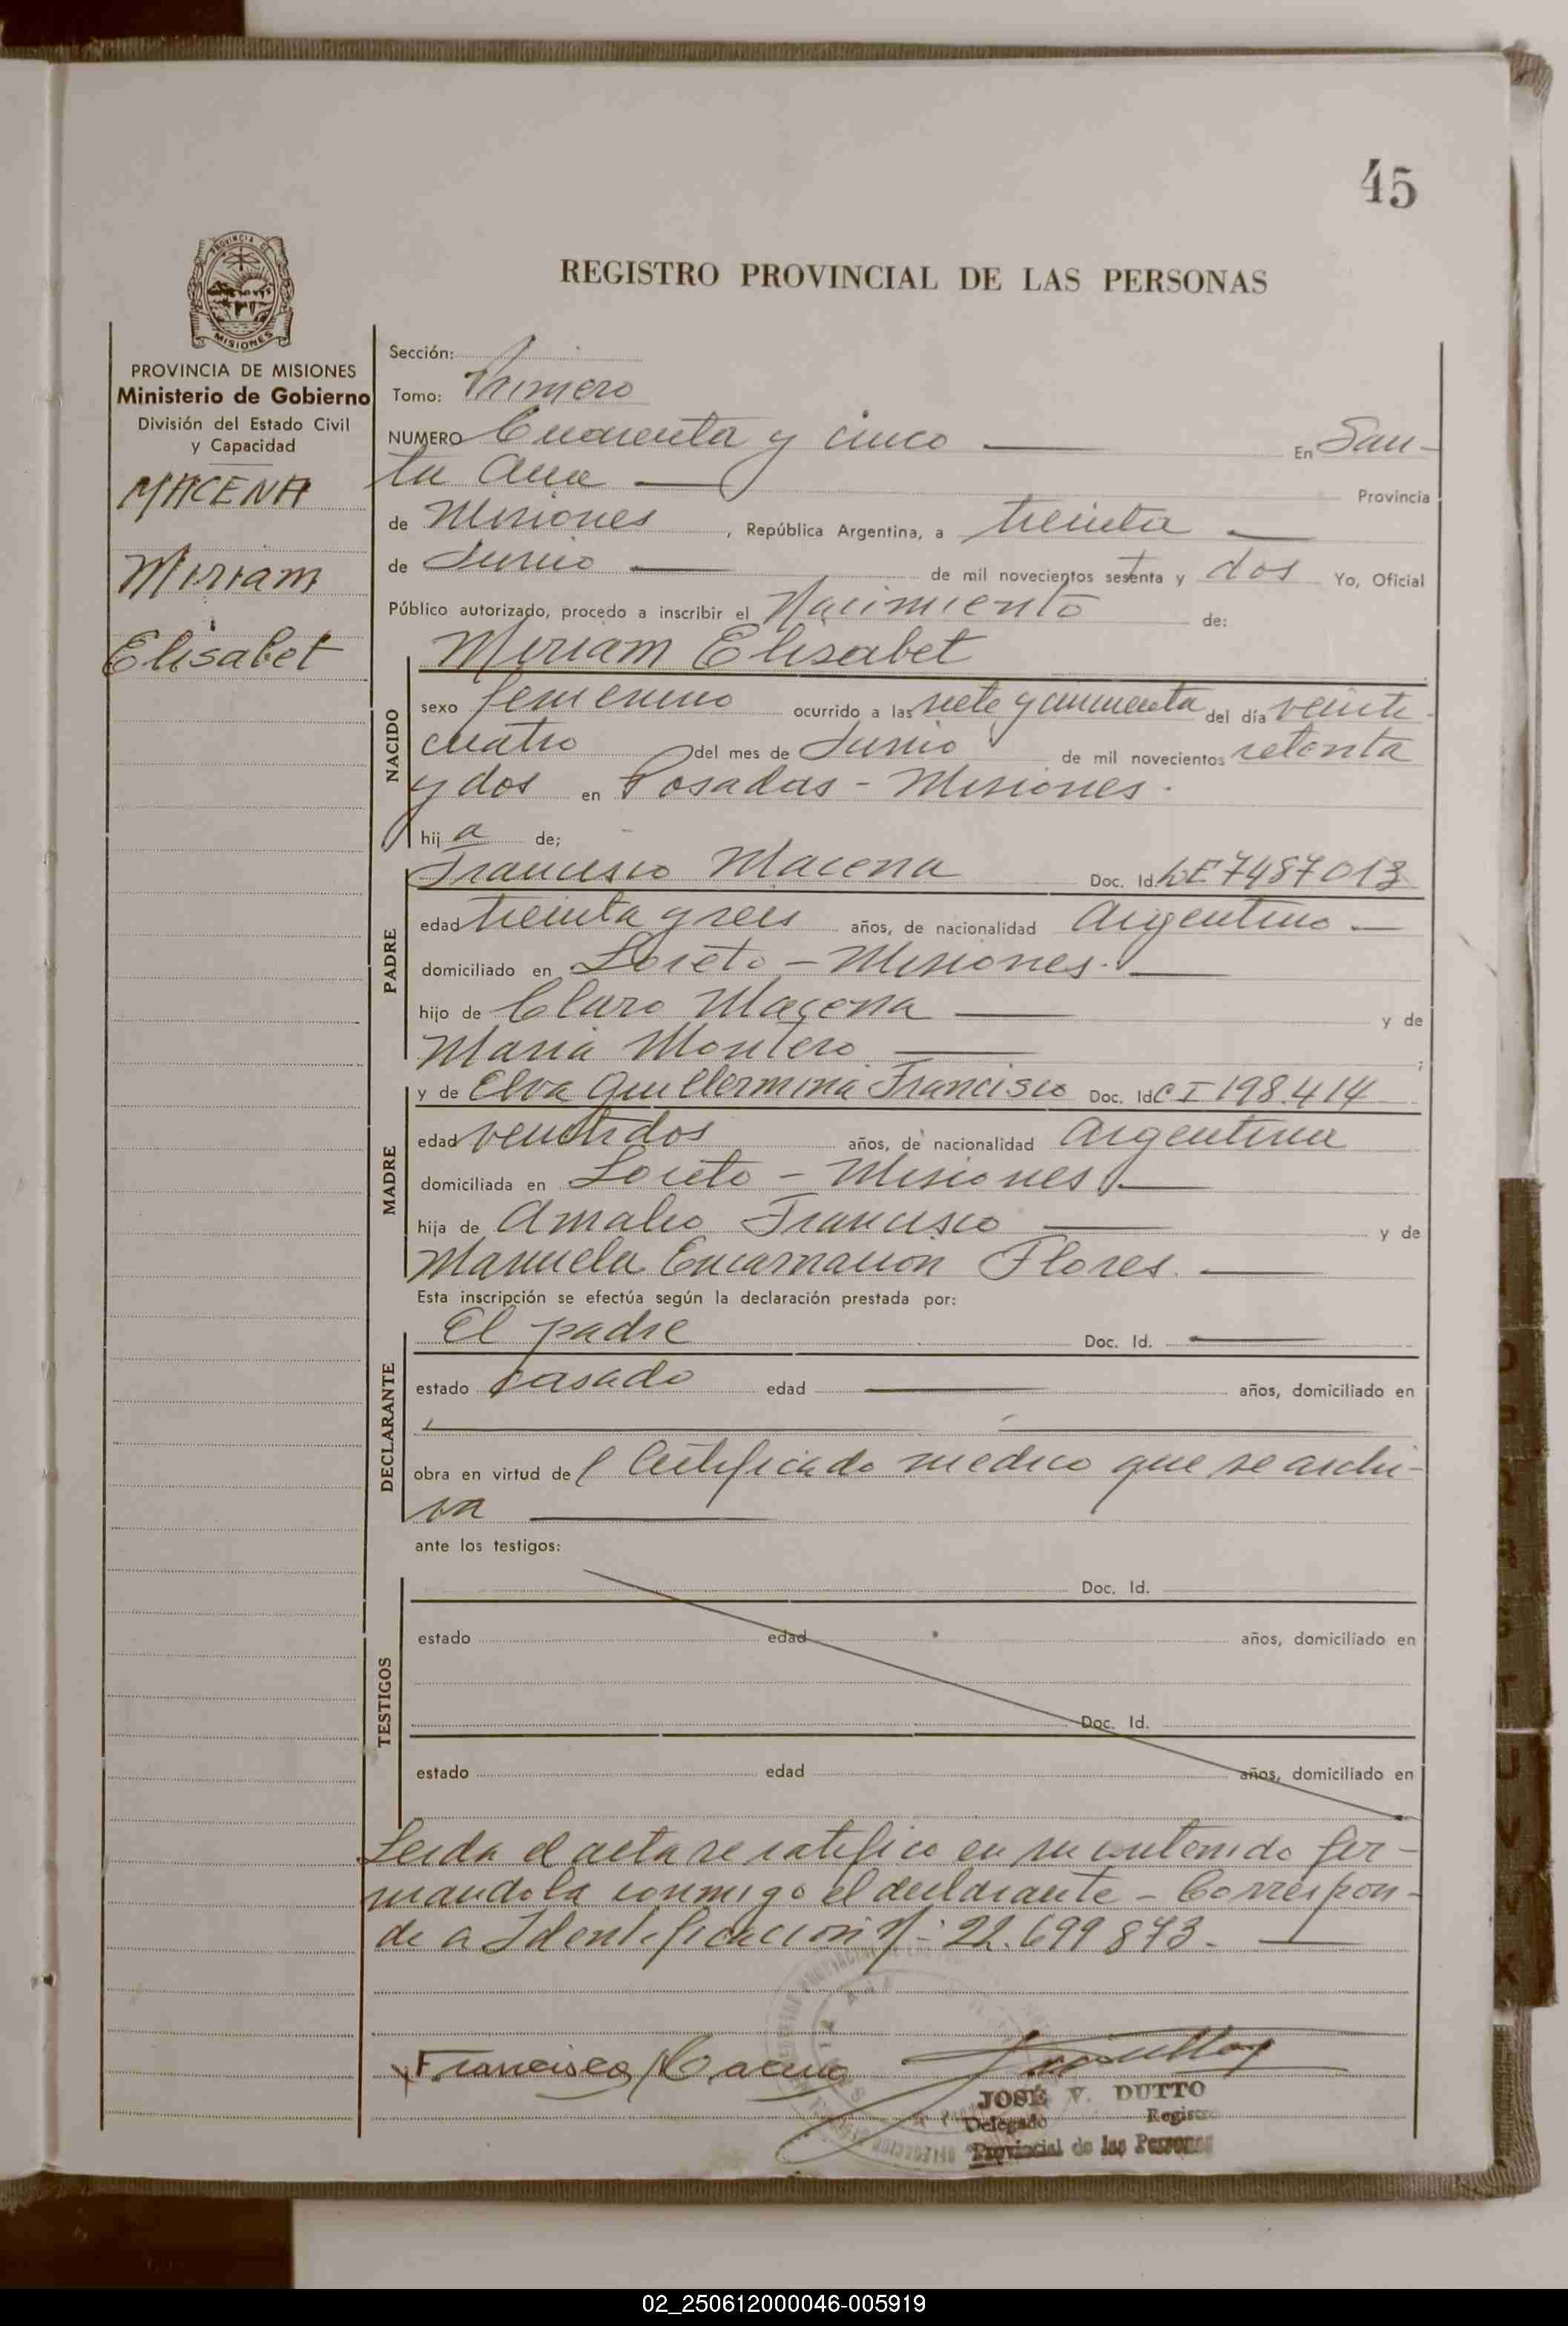 45
PROVINCIA DE MISIONES
REGISTRO PROVINCIAL DE LAS PERSONAS
PROVINCIA DE MISIONES
Ministerio de Gobierno
División del Estado Civil
y Capacidad
MACENA
Miriam
Elisabet
Sección:
Tomo: Primero
NUMERO Cuarenta y cinco En San-
ta Ana Provincia
de Misiones, República Argentina, a treinta
de Junio de mil novecientos sesenta y dos Yo, Oficial
Público autorizado, procedo a inscribir el Nacimiento de:
Miriam Elisabet
NACIDO
sexo femenino ocurrido a las siete y cincuenta del día veinti-
cuatro del mes de Junio de mil novecientos setenta
y dos en Posadas - Misiones.
hija de;
Francisco Macena Doc. Id. LE 7487013
PADRE
edad treinta y seis años, de nacionalidad Argentino
domiciliado en Loreto - Misiones.
hijo de Claro Macena y de
Maria Montero;
y de Elva Guillermina Francisco Doc. Id CI 198.414
MADRE
edad veintidos años, de nacionalidad Argentina
domiciliada en Loreto - Misiones
hija de Amalio Francisco y de
Manuela Encarnacion Flores.
Esta inscripción se efectúa según la declaración prestada por:
El padre Doc. Id.
DECLARANTE
estado casado edad años, domiciliado en
obra en virtud de l Certificado medico que se archi-
va
ante los testigos:
Doc. Id.
TESTIGOS
estado edad años, domiciliado en
Doc. Id.
estado edad años, domiciliado en
Leida el acta se ratifico en su contenido fir-
mandola conmigo el declarante - Correspon-
de a Identificacion N: 22.699873.
Francisco Macena
JOSE V. DUTTO
Delegado Registro
Provincial de las Personas
02_250612000046-005919